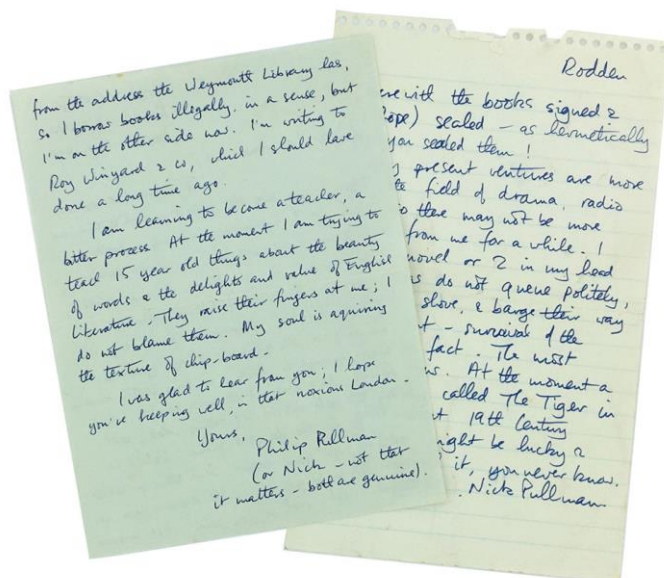 from the address the Weymouth Library has,
so I borrow books illegally in a sense, but
I'm on the other side now. I'm writing to
Roy Winyard & co, which I should have
done a long time ago.
I am learning to become a teacher, a
bitter process. At the moment I am trying to
teach 15 year old things about the beauty
of words & the delights and value of English
literature - They raise their fingers at me; I
do not blame them. My soul is aquiring
the texture of chip-board.
I was glad to hear from you; I hope
you're keeping well, in that noxious London.
Yours,
Philip Pullman
(or Nick - not that
it matters - both are genuine).
Rodden
with the books signed &
sealed - as hermetically
you sealed them!
present ventures are more
field of drama, radio
there may not be more
from me for a while. I
novel or 2 in my head
do not queue politely,
shove, & barge their way
- survival of the
fact. The most
At the moment a
called The Tiger in
19th Century
might be lucky &
it, you never know.
Nick Pullman